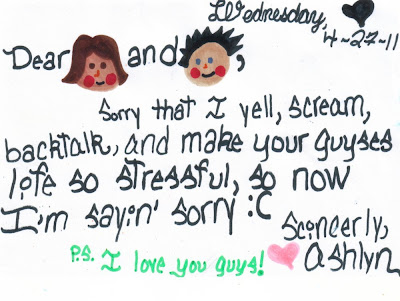 Wednesday,
4-27-11
Dear and ,
Sorry that I yell, scream,
backtalk, and make your guyses
life so stressful, so now
I'm sayin' sorry :C
Scincerly,
ashlyn
P.S. I love you guys!